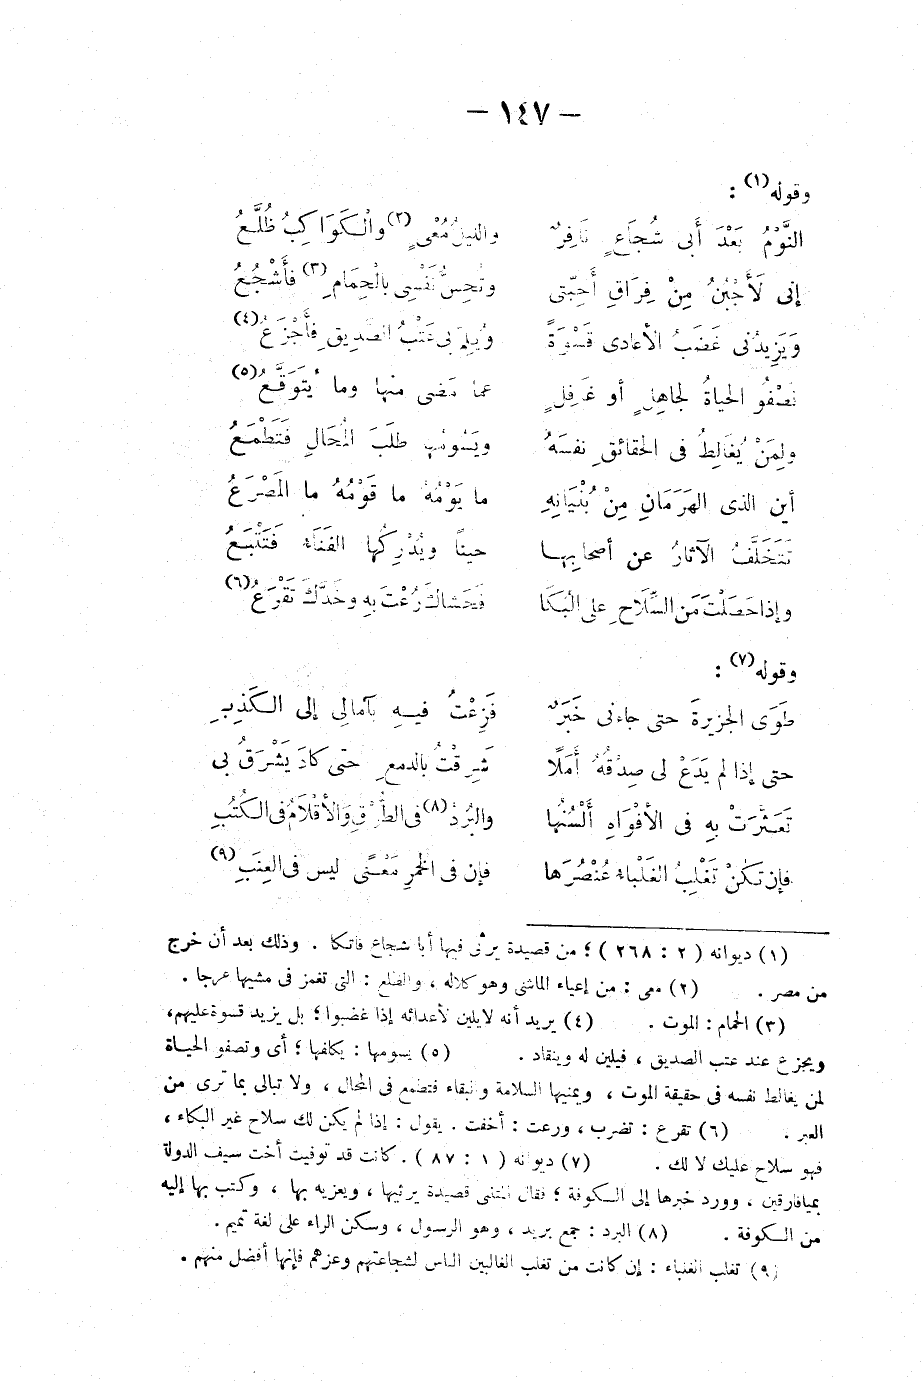 — ١٤٧ —
وقوله(١) :
النَّوْمُ بَعْدَ أَبى شُجَاعٍ نَافِرٌ والليلُ مُعْىٍ(٢) والْكَوَاكِبُ ظُلَّعُ
إنى لَأَجْبُنُ مِنْ فِرَاقِ أَحِبَّتى وتُحِسُّ نَفْسِى بالْحِمَامِ(٣) فأَشْجُعُ
وَيَزِيدُنى غَضَبُ الأعادى قَسْوَةً ويُلِمُّ بى عَتْبُ الصديقِ فأَجْزَعُ(٤)
تَصْفُو الحياةُ لجاهِلٍ أو غَافِلٍ عما مَضى منها وما يُتَوَقَّعُ(٥)
ولِمَنْ يُغَالِطُ فى الحقائقِ نفسَهُ ويَسُومُها طلَبَ المُحَالِ فَتَطْمَعُ
أين الذى الهَرَمَانِ مِنْ بُنْيَانِهِ ما يَوْمُهُ ما قَوْمُهُ ما المَصْرَعُ
تَتَخَلَّفُ الآثارُ عن أصحابِها حيناً ويُدْرِكُها الفَنَاءُ فَتَتْبَعُ
وإذا حَصَلْتَ مَن السِّلَاحِ على البُكَا فَحَشاكَ رُعْتَ بِه وخَدَّكَ تَقْرَعُ(٦)
وقوله(٧) :
طَوَى الجزيرةَ حتى جاءنى خَبَرٌ فَزِعْتُ فيهِ بآمالِى إلى الكَذِبِ
حتى إذا لم يَدَعْ لى صِدْقُهُ أَمَلًا شَرِقْتُ بالدمعِ حتى كادَ يَشْرَقُ بى
تَعَثَّرَتْ بِهِ فى الأفْوَاهِ أَلْسُنُها والبُرْدُ(٨) فى الطُّرْقِ وَالأقْلَامُ فى الكُتُبِ
فإن تَكُنْ تَغْلِبُ الغَلْبَاءُ عُنْصُرَها فإن فى الخمرِ مَعْنًى ليس فى العِنَبِ(٩)
(١) ديوانه ( ٢ : ٢٦٨ ) ؛ من قصيدة يرثى فيها أبا شجاع فاتكا . وذلك بعد أن خرج
من مصر . (٢) معى : من إعياء الماشى وهو كلاله ، والظلع : التى تغمز فى مشيها عرجا .
(٣) الحمام : الموت . (٤) يريد أنه لا يلين لأعدائه إذا غضبوا ؛ بل يزيد قسوة عليهم ،
ويجزع عند عتب الصديق ، فيلين له وينقاد . (٥) يسومها : يكلفها ؛ أى وتصفو الحياة
لمن يغالط نفسه فى حقيقة الموت ، ويمنيها السلامة والبقاء فتطمع فى المحال ، ولا تبالى بما ترى من
العبر . (٦) تقرع : تضرب ، ورعت : أخفت . يقول : إذا لم يكن لك سلاح غير البكاء ،
فهو سلاح عليك لا لك . (٧) ديوانه ( ١ : ٨٧ ) . كانت قد توفيت أخت سيف الدولة
بميافارقين ، وورد خبرها إلى الكوفة ؛ فقال المتنبى قصيدة يرثيها ، ويعزيه بها ، وكتب بها إليه
من الكوفة . (٨) البرد : جمع بريد ، وهو الرسول ، وسكن الراء على لغة تميم .
(٩) تغلب الغلباء : إن كانت من تغلب الغالبين الناس لشجاعتهم وعزهم فإنها أفضل منهم .